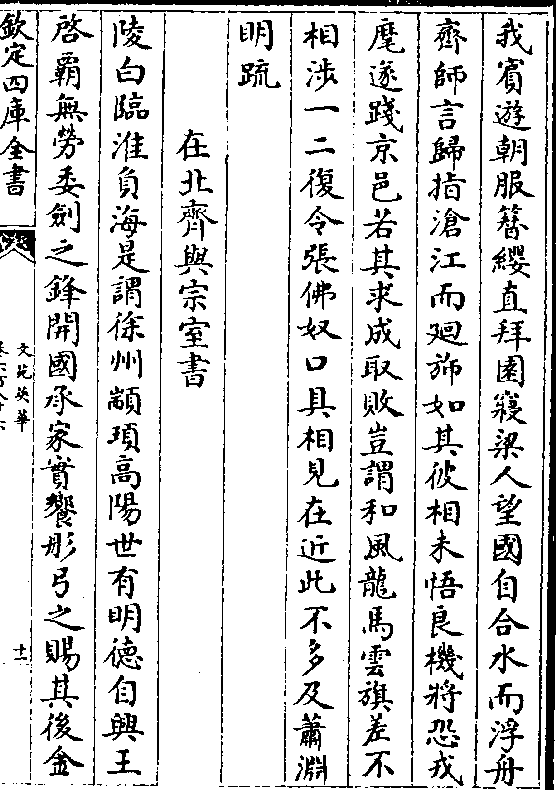 我賓遊朝服簪纓直拜園寢梁人望國自合水而浮舟
齊師言歸指滄江而廻斾如其彼相未悟良機將恐戎
麾遂踐京邑若其求成取敗豈謂和風龍馬雲旗差不
相涉一二復令張佛奴口具相見在近此不多及蕭淵
明䟽
在北齊與宗室書
陵白臨淮負海是謂徐州顓頊高陽世有明德自興王
啓霸無勞委劍之鋒開國承家實饗彤弓之賜其後金
欽定四庫全書
文苑英華
十一